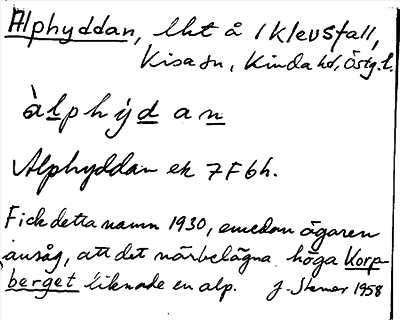 Alphyddan, lht å 1 Klevsfall,
Kisa sn, Kinda hd, Östg. l.
àlphýdan
Alphyddan ek 7F6h.
Fick detta namn 1930, emedan ägaren
ansåg, att det närbelägna höga Korp-
berget liknade en alp. J. Stemer 1958